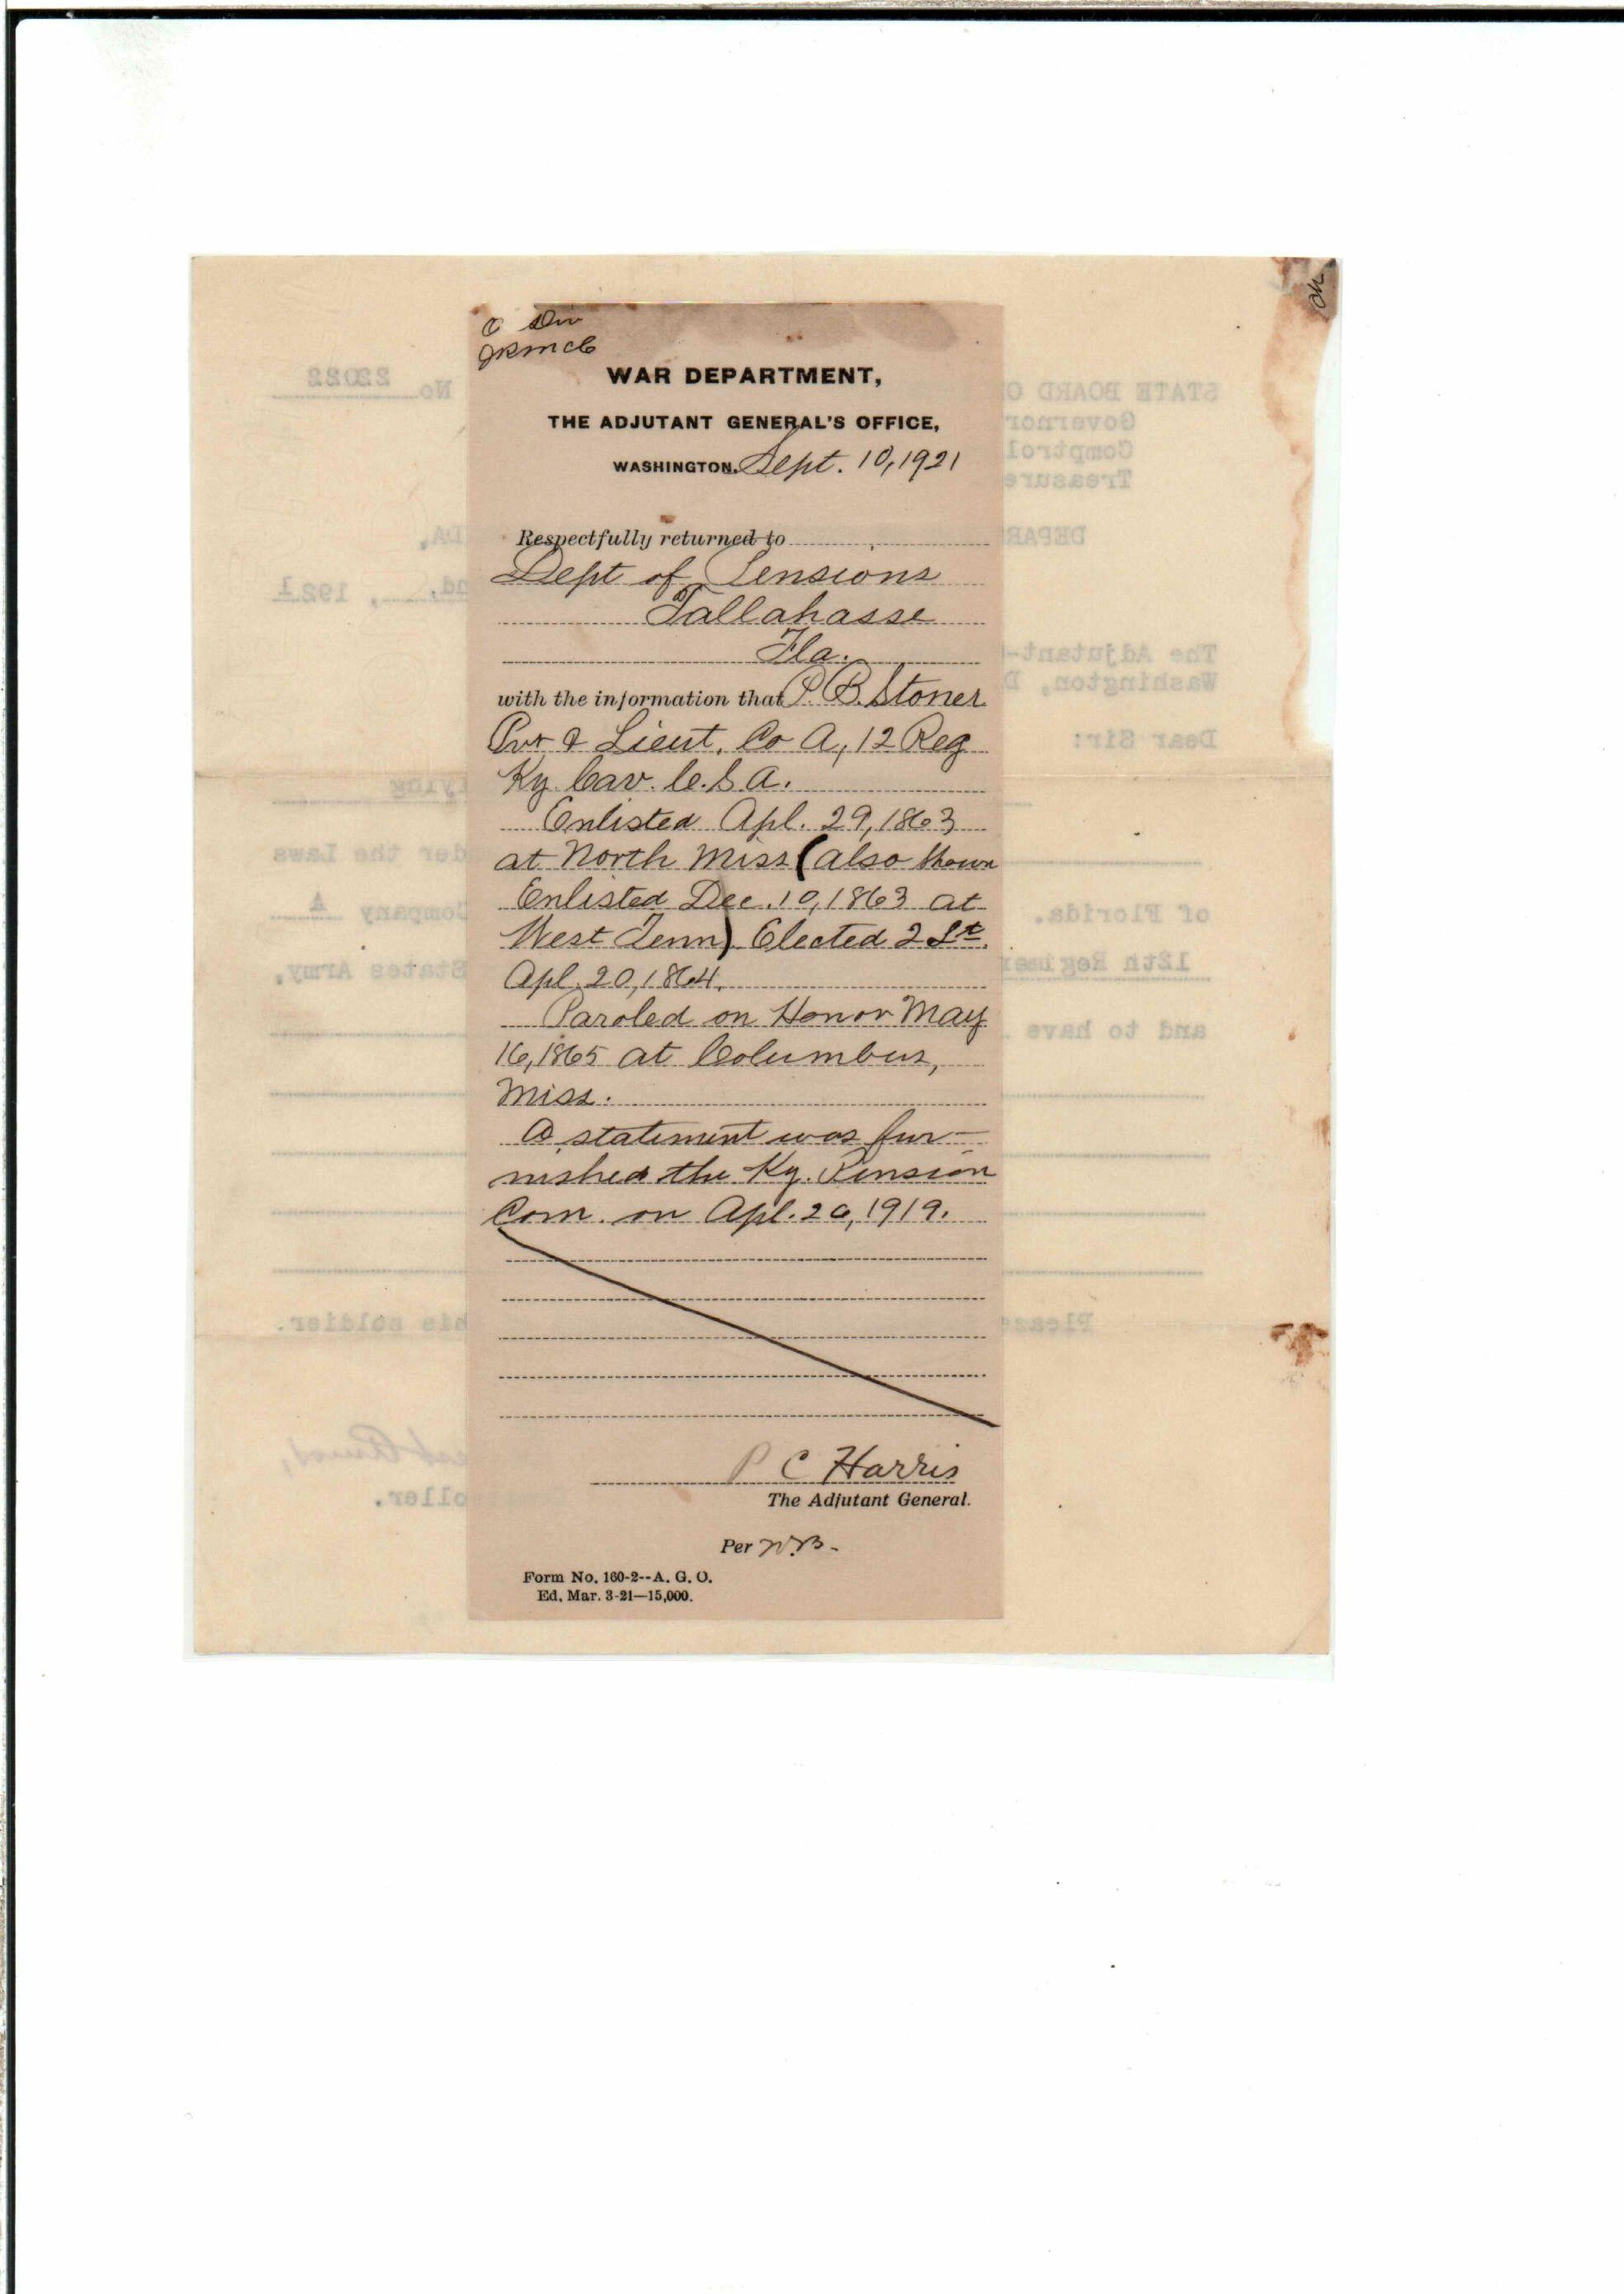 WAR DEPARTMENT,
THE ADJUTANT GENERAL'S OFFICE,
WASHINGTON. Sept. 10, 1921
Respectfully returned to
Dept of Pensions
Tallahasse
Fla.
with the information that P. B. Stoner
Pvt & Lieut. Co A, 12 Reg
Ky Cav. C.S.A.
Enlisted Apl. 29, 1863
at North Miss (also shown
Enlisted Dec. 10, 1863 at
West Tenn) Elected 2 Lt.
Apl. 20, 1864.
Paroled on Honor May
16, 1865 at Columbus,
Miss.
A statement was fur-
nished the Ky. Pension
Com. on Apl. 26, 1919.
P C Harris
The Adjutant General.
Per
Form No. 160-2--A. G. O.
Ed. Mar. 3-21—15,000.
No 22022
STATE BOARD O
Governor
Comptrol
Treasure
DEPAR
DA,
nd, , 1921
The Adjutant-
Washington, D
Dear Sir:
ying
der the Laws
of Florida.
Company A
12th Regimen
States Army,
and to have
Please
his soldier.
oller.